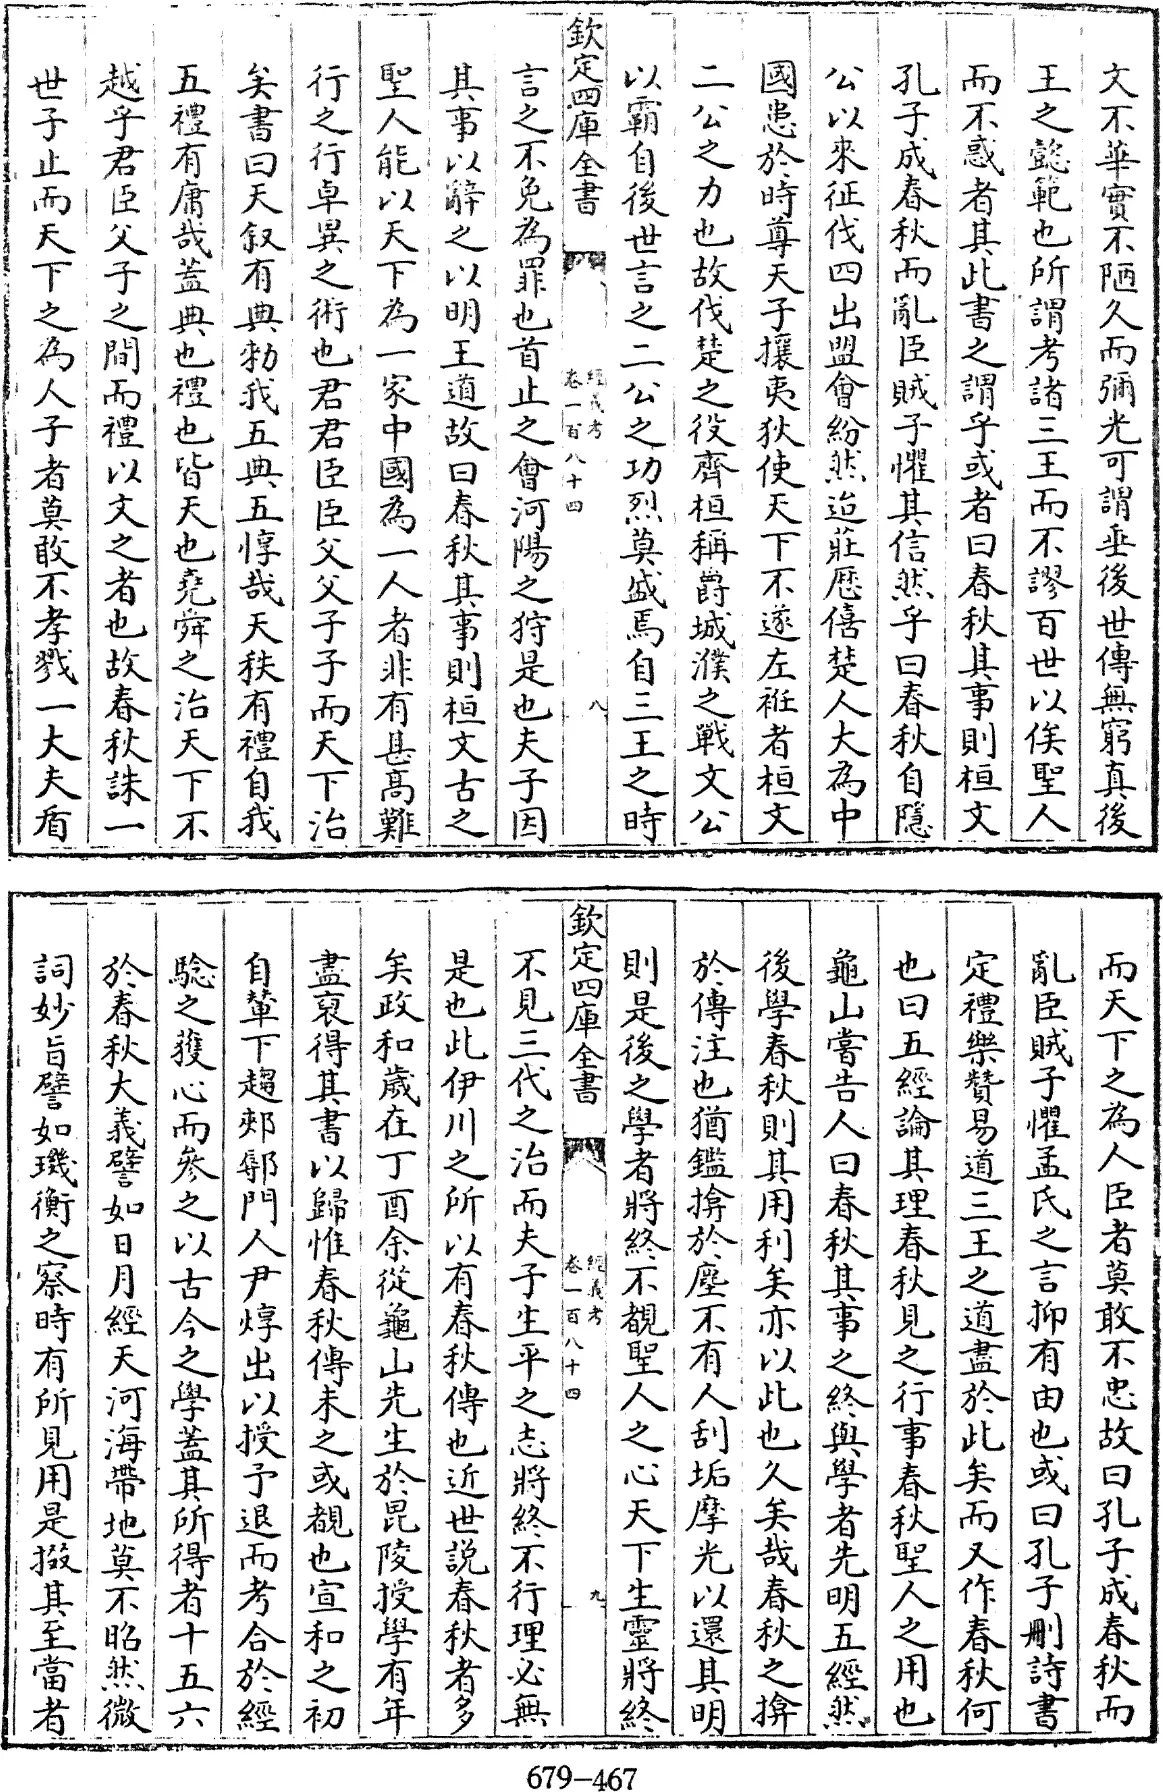 文不華實不陋久而彌光可謂垂後世傳無窮真後
王之懿範也所謂考諸三王而不謬百世以俟聖人
而不惑者其此書之謂乎或者曰春秋其事則桓文
孔子成春秋而亂臣賊子懼其信然乎曰春秋自隱
公以來征伐四出盟會紛然迨莊歴僖楚人大為中
國患於時尊天子攘夷狄使天下不遂左袵者桓文
二公之力也故伐楚之役齊桓稱爵城濮之戰文公
以霸自後世言之二公之功烈莫盛焉自三王之時
欽定四庫全書
經義考
卷一百八十四
八
言之不免為罪也首止之會河陽之狩是也夫子因
其事以辭之以明王道故曰春秋其事則桓文古之
聖人能以天下為一家中國為一人者非有甚高難
行之行卓異之術也君君臣臣父父子子而天下治
矣書曰天叙有典勑我五典五惇哉天秩有禮自我
五禮有庸哉蓋典也禮也皆天也堯舜之治天下不
越乎君臣父子之間而禮以文之者也故春秋誅一
世子止而天下之為人子者莫敢不孝戮一大夫盾
而天下之為人臣者莫敢不忠故曰孔子成春秋而
亂臣賊子懼孟氏之言抑有由也或曰孔子刪詩書
定禮樂贊易道三王之道盡於此矣而又作春秋何
也曰五經論其理春秋見之行事春秋聖人之用也
龜山嘗告人曰春秋其事之終與學者先明五經然
後學春秋則其用利矣亦以此也久矣哉春秋之揜
於傳注也猶鑑揜於塵不有人刮垢摩光以還其明
則是後之學者將終不覩聖人之心天下生靈將終
欽定四庫全書
經義考
卷一百八十四
九
不見三代之治而夫子生平之志將終不行理必無
是也此伊川之所以有春秋傳也近世說春秋者多
矣政和歲在丁酉余從龜山先生於毘陵授學有年
盡裒得其書以歸惟春秋傳未之或覩也宣和之初
自輦下趨郟鄏門人尹焞出以授予退而考合於經
騐之獲心而參之以古今之學蓋其所得者十五六
於春秋大義譬如日月經天河海帶地莫不昭然微
詞妙旨譬如璣衡之察時有所見用是掇其至當者
679-467